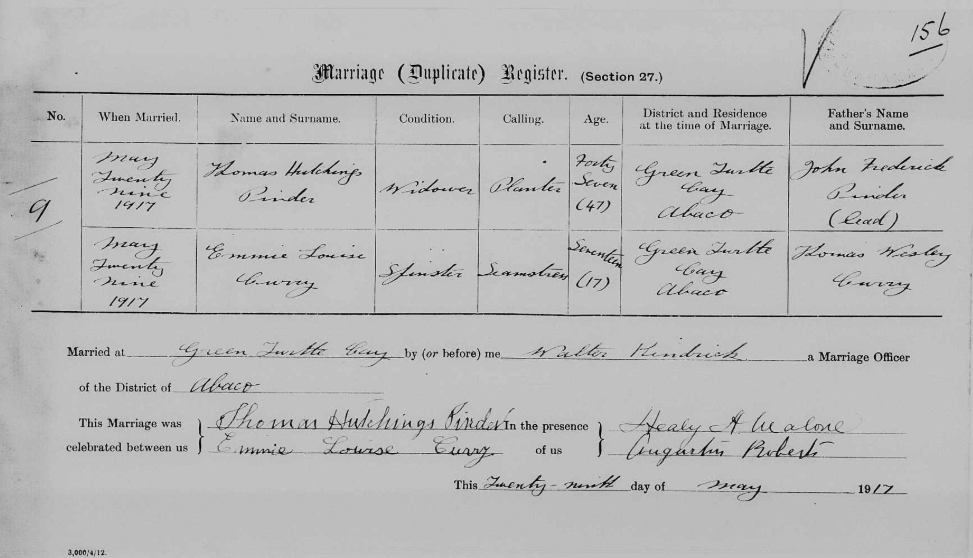 156
Marriage (Duplicate) Register. (Section 27.)
No. When Married. Name and Surname. Condition. Calling. Age. District and Residence at the time of Marriage. Father's Name and Surname.
9
May Twenty nine 1917 Thomas Hutchings Pinder Widower Planter Forty Seven (47) Green Turtle Cay Abaco John Frederick Pinder (dead)
May Twenty nine 1917 Emmie Louise Curry Spinster Seamstress Seventeen (17) Green Turtle Cay Abaco Thomas Wesley Curry
Married at Green Turtle Cay by (or before) me Walter Kendrick a Marriage Officer
of the District of Abaco
This Marriage was celebrated between us } Thomas Hutchings Pinder
Emmie Louise Curry
In the presence of us } Healy A Malone
Augustin Roberts
This Twenty-ninth day of May 1917
3,000/4/12.